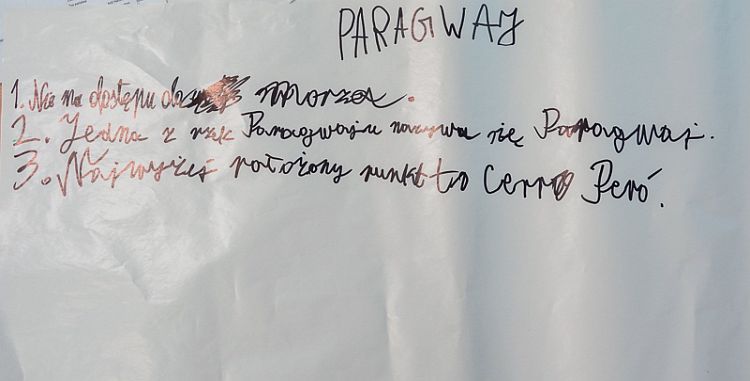 PARAGWAJ
1. Nie ma dostępu do morza.
2. Jedna z rzek Paragwaju nazywa się Paragwaj.
3. Najwyżej położony punkt to Cerro Peró.